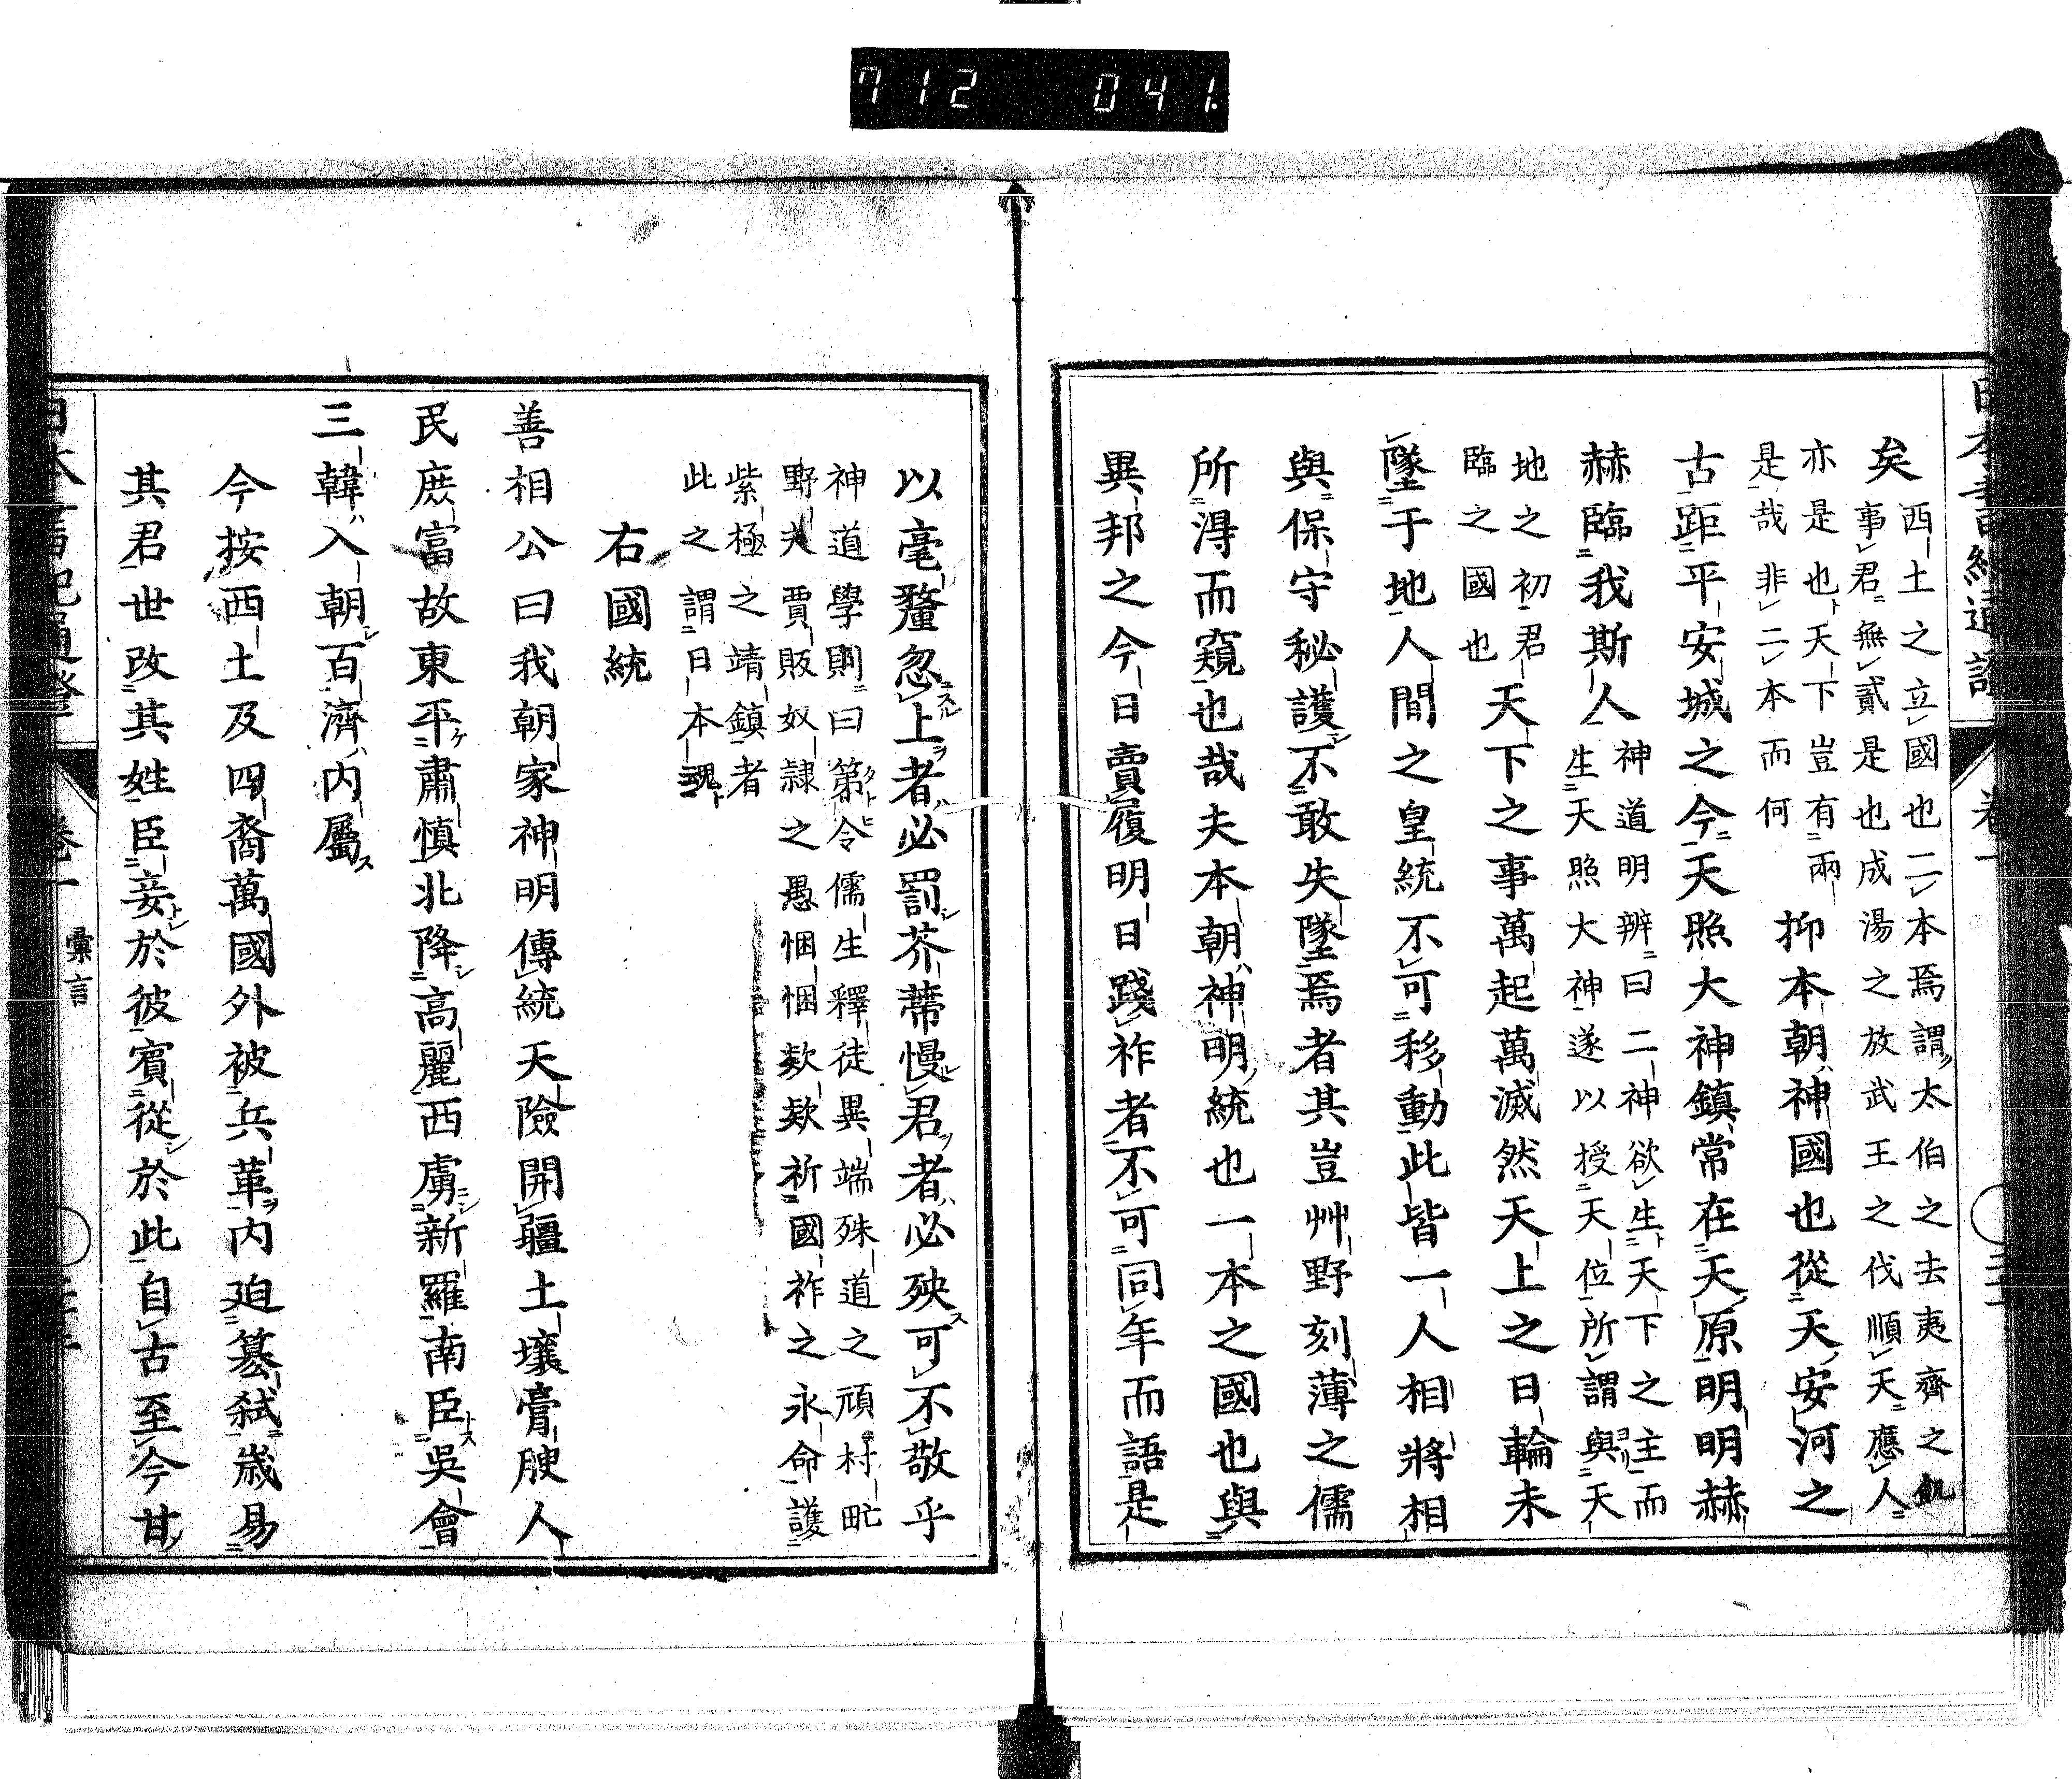 712 041.
矣
西土之立國也二本焉謂太伯之去夷齊之飢
事君無貳是也成湯之放武王之伐順天應人
亦是也天下豈有兩
是哉非二本而何
抑本朝神國也從天安河之
古距平安城之今天照大神鎮常在天原明明赫
赫臨我斯人
神道明辨曰二神欲生天下之主而
生天照大神遂以授天位所謂與天
地之初君
臨之國也
天下之事萬起萬滅然天上之日輪未
墜于地人間之皇統不可移動此皆一人相將相
與保守秘護不敢失墜焉者其豈艸野刻薄之儒
所得而窺也哉夫本朝神明統也一本之國也與
異邦之今日賣履明日踐祚者不可同年而語是
以毫釐忽上者必罰芥蔕慢君者必殃可不敬乎
神道學則曰第令儒生釋徒異端殊道之頑村甿
野夫賈販奴隷之愚悃悃欵欵祈國祚之永命護
紫極之靖鎮者
此之謂日本魂
右國統
善相公曰我朝家神明傳統天險開疆土壤膏腴人
民庶富故東平肅慎北降高麗西虜新羅南臣吳會
三韓入朝百濟內屬
今按西土及四裔萬國外被兵革内迫簒弑歲易
其君世改其姓臣妾於彼賓從於此自古至今甘
卷一
彙言